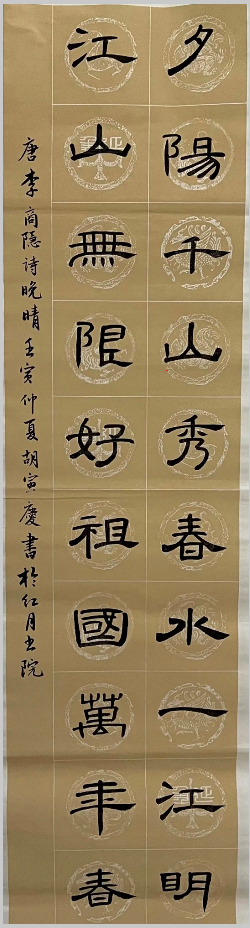 夕陽千山秀春水一江明
江山無限好祖國萬年春
唐李商隱詩晚晴壬寅仲夏胡寅慶書於紅月書院